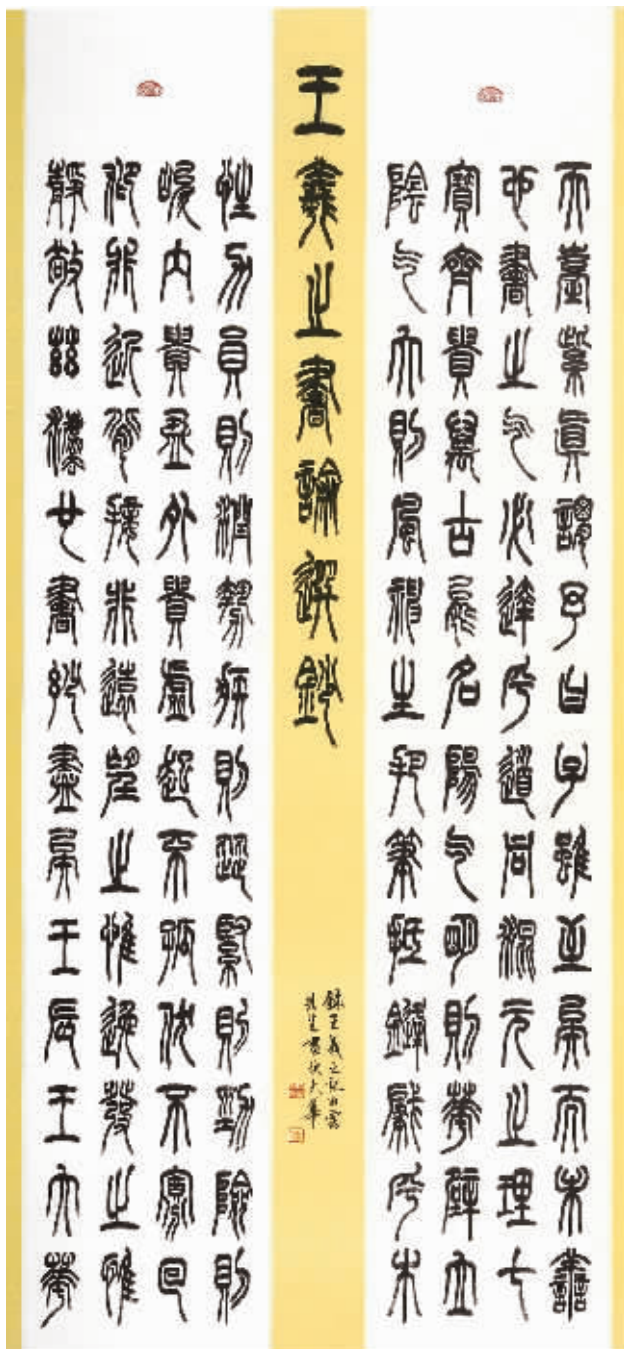 天臺紫真謂予曰子雖至矣而未善
也書之气必達乎道同混元之理七
寶齊貴萬古能名陽气明則華壁立
陰气大則風神生把筆抵鋒肇乎本
王羲之書論選鈔
錄王羲之記白雲
先生書訣大華
性力員則潤勢疾則澀緊則勁險則
峻內貴盈外貴虛起不孤伏不寡回
仰非近背接非遠望之惟逸發之惟
靜敬茲灋也書玅盡矣壬辰王大華